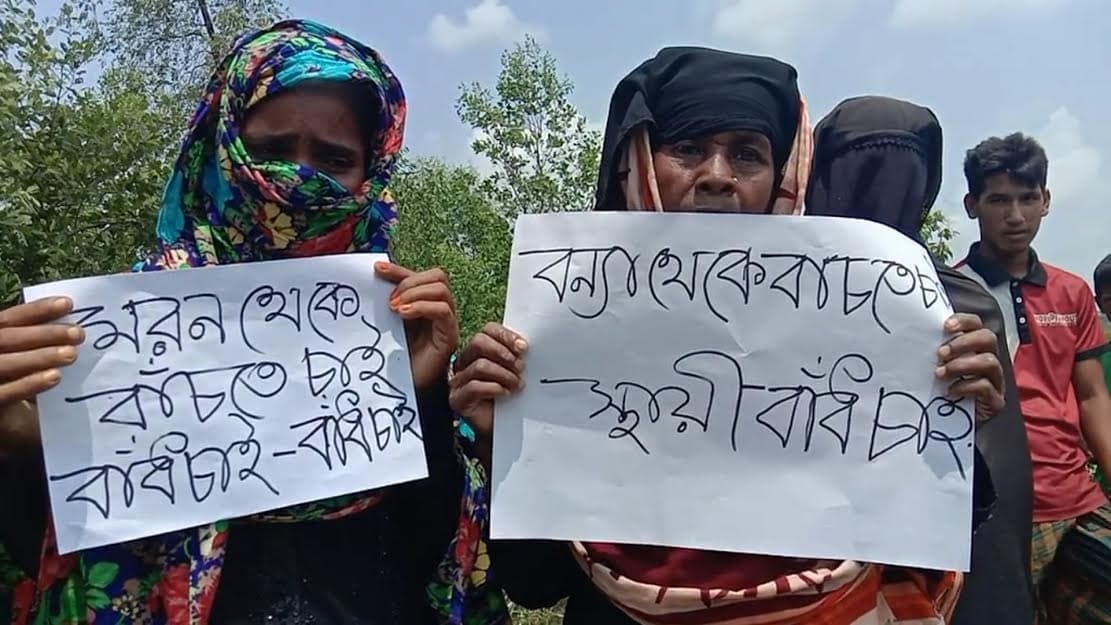 মরন থেকে
বাঁচতে চাই
বাঁধ চাই-বাঁধ চাই
বন্যা থেকে বাচতে চ
স্থায়ী বাঁধ চাই